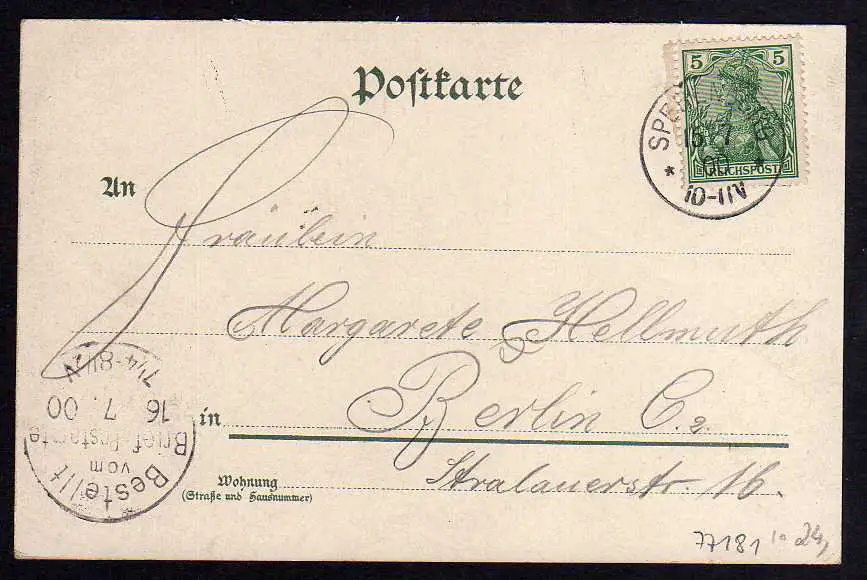 Postkarte
5 5
REICHSPOST
15 7
00
* *
10-11N
An
Fräulein
Margarete Hellmuth
in Berlin C.2
Wohnung
(Straße und Hausnummer)
Stralauerstr. 16.
Bestellt
vom
Brief-Postamte
16. 7. 00
7¼-8½N
77181